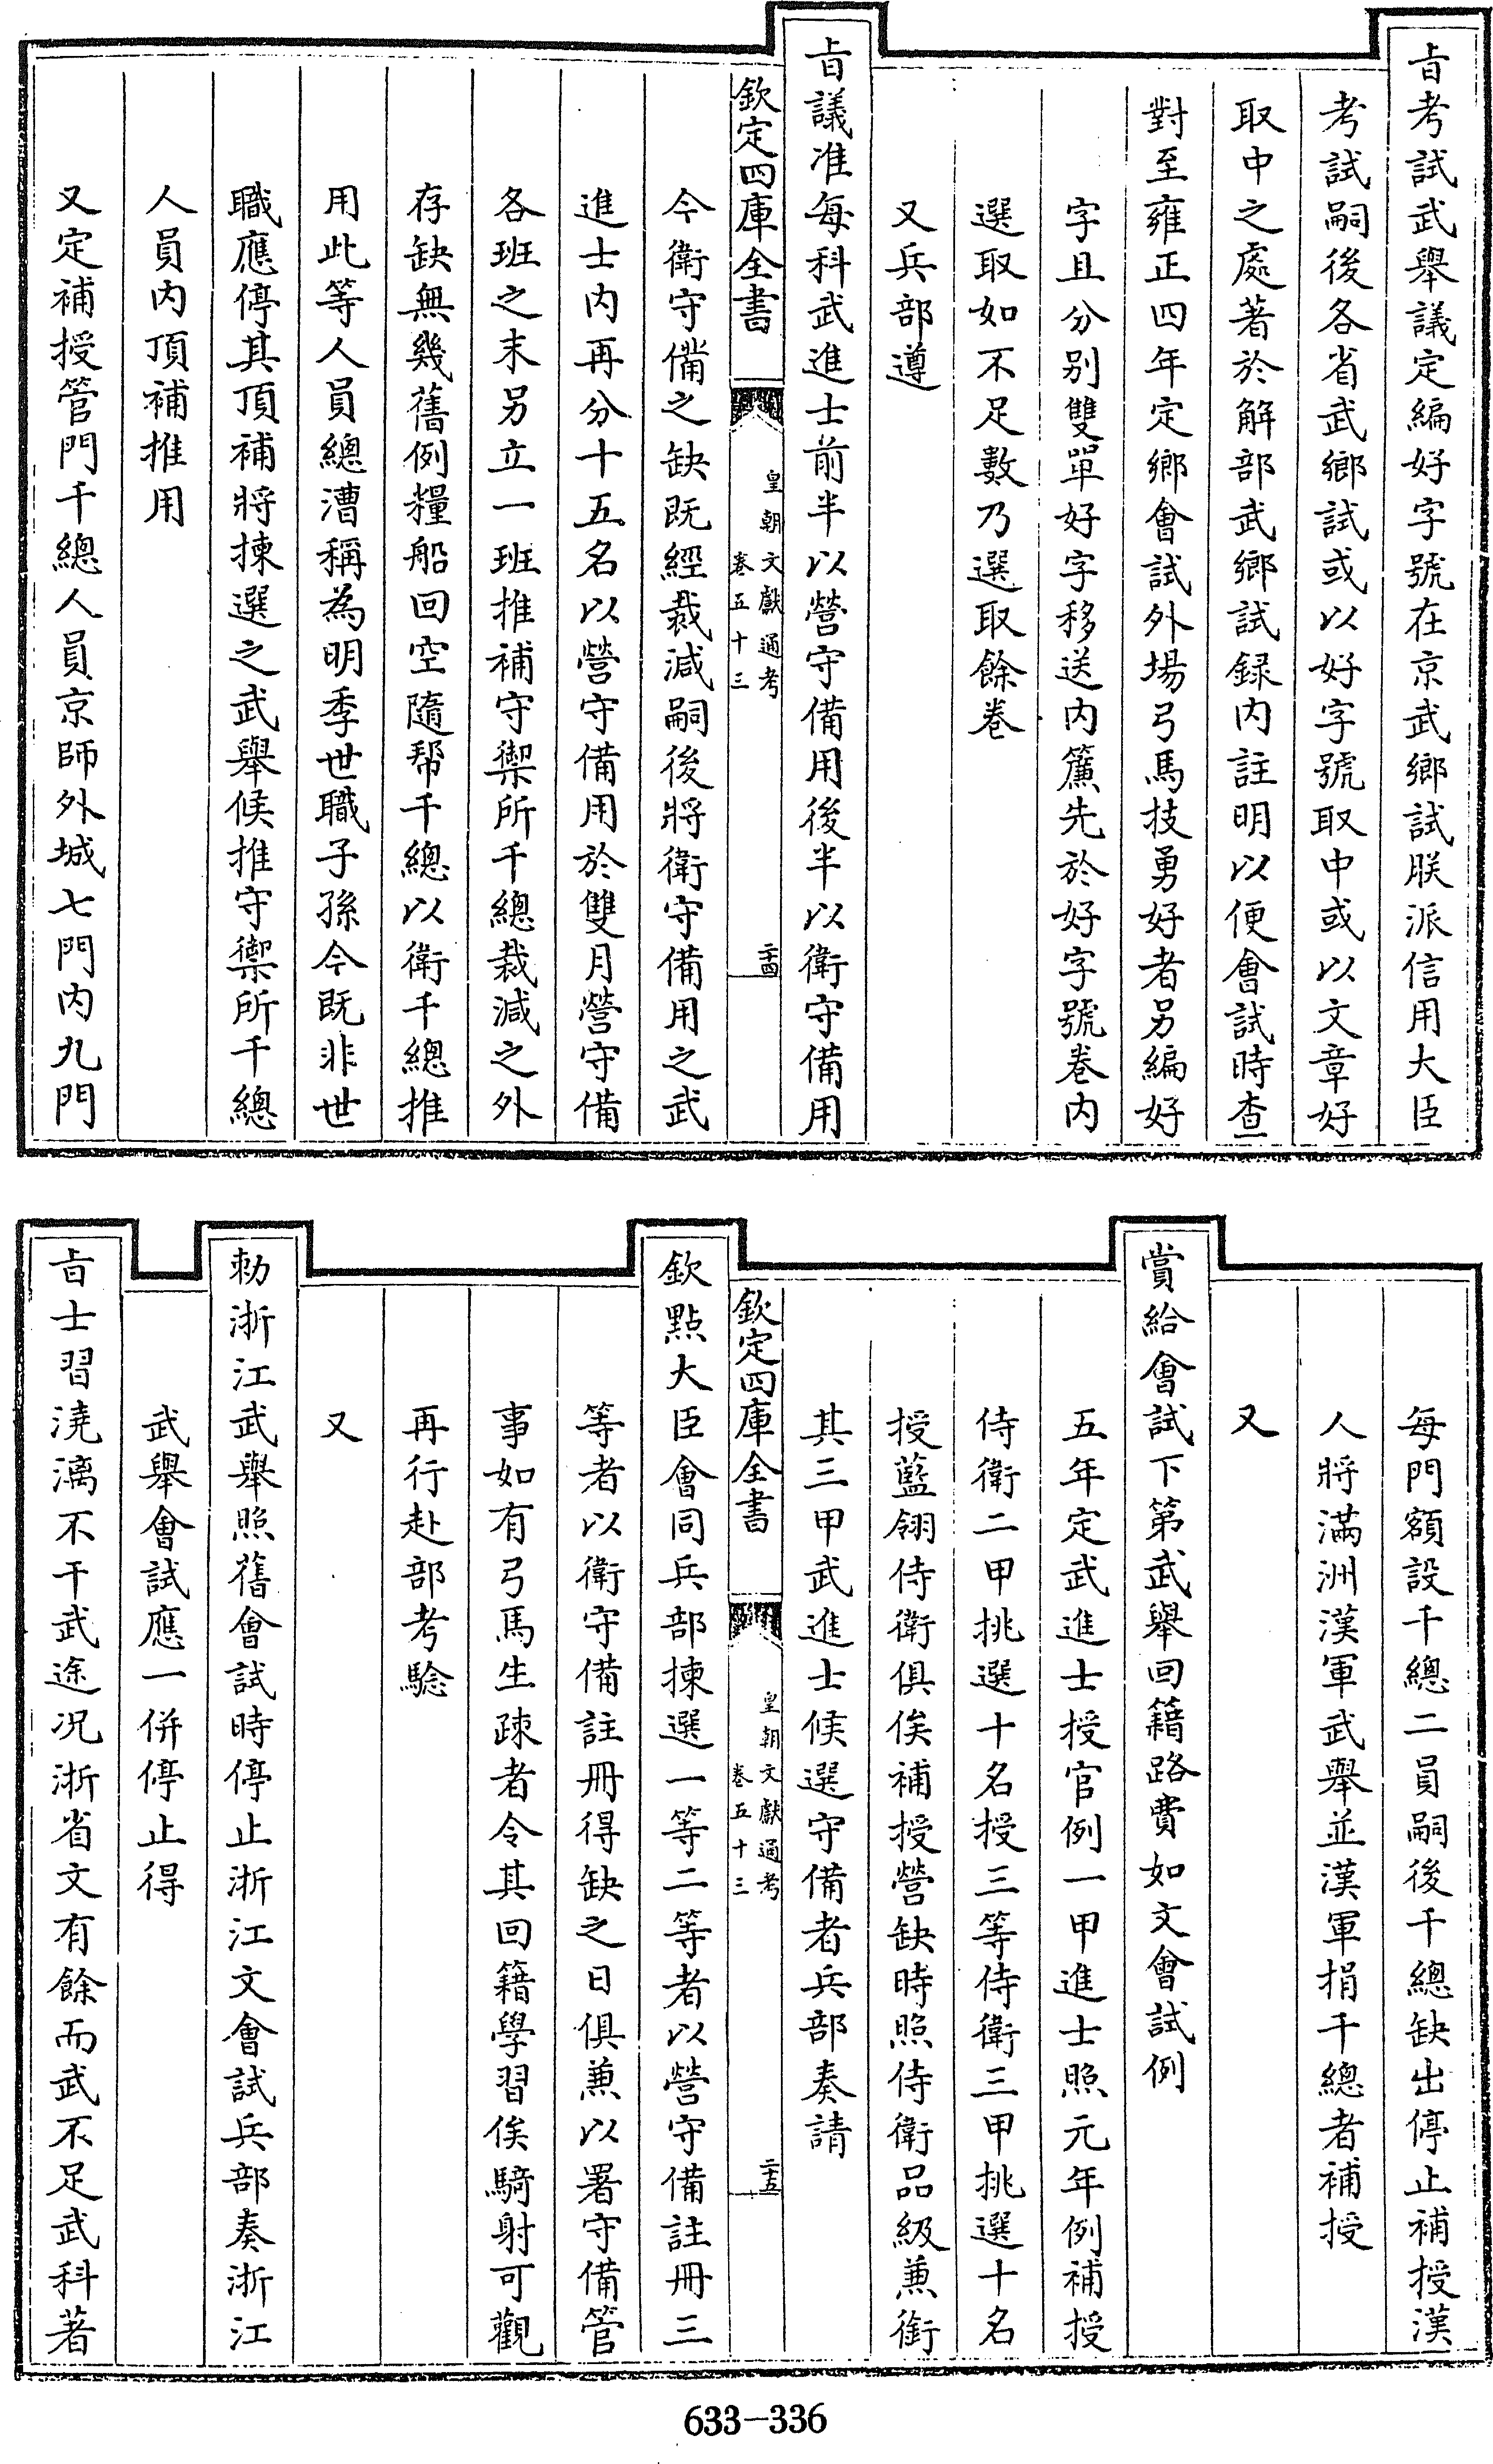 旨考試武舉議定編好字號在京武鄉試朕派信用大臣
考試嗣後各省武鄉試或以好字號取中或以文章好
取中之處著於解部武鄉試録内註明以便會試時查
對至雍正四年定鄉會試外場弓馬技勇好者另編好
字且分别雙單好字移送内簾先於好字號卷内
選取如不足數乃選取餘卷
又兵部遵
旨議准每科武進士前半以營守備用後半以衛守備用
欽定四庫全書
皇朝文獻通考
卷五十三
二十四
今衛守備之缺既經裁減嗣後將衛守備用之武
進士内再分十五名以營守備用於雙月營守備
各班之末另立一班推補守禦所千總裁減之外
存缺無幾舊例糧船回空隨帮千總以衛千總推
用此等人員總漕稱為明季世職子孫今既非世
職應停其頂補將揀選之武舉候推守禦所千總
人員内頂補推用
又定補授管門千總人員京師外城七門内九門
每門額設千總二員嗣後千總缺出停止補授漢
人將滿洲漢軍武舉並漢軍捐千總者補授
又
賞給會試下第武舉回籍路費如文會試例
五年定武進士授官例一甲進士照元年例補授
侍衛二甲挑選十名授三等侍衛三甲挑選十名
授藍翎侍衛俱俟補授營缺時照侍衛品級兼銜
其三甲武進士候選守備者兵部奏請
欽定四庫全書
皇朝文獻通考
卷五十三
二十五
欽點大臣會同兵部揀選一等二等者以營守備註冊三
等者以衛守備註冊得缺之日俱兼以署守備管
事如有弓馬生疎者令其回籍學習俟騎射可觀
再行赴部考驗
又
勅浙江武舉照舊會試時停止浙江文會試兵部奏浙江
武舉會試應一併停止得
旨士習澆漓不干武途况浙省文有餘而武不足武科著
633-336